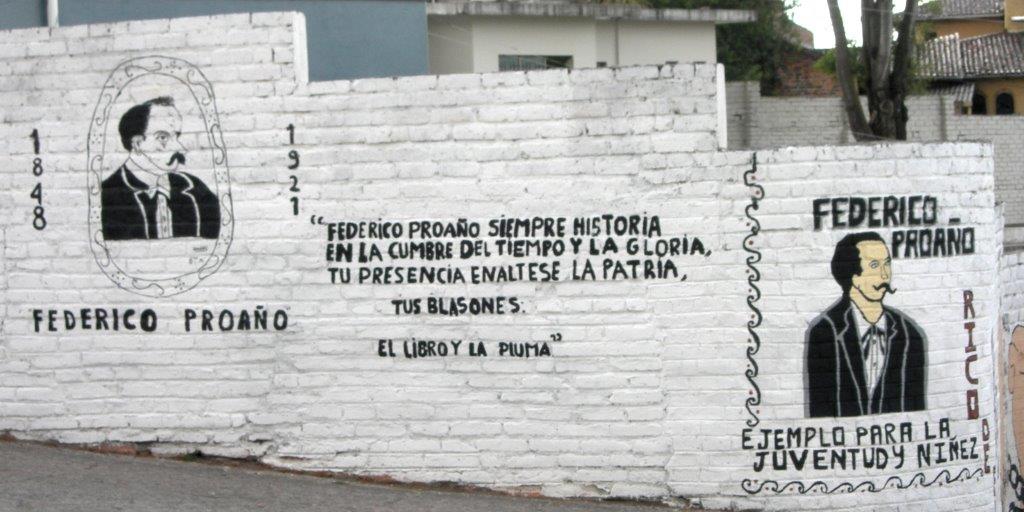 1848
1921
FEDERICO PROAÑO
"FEDERICO PROAÑO SIEMPRE HISTORIA
EN LA CUMBRE DEL TIEMPO Y LA GLORIA,
TU PRESENCIA ENALTESE LA PATRIA,
TUS BLASONES.
EL LIBRO Y LA PLUMA"
FEDERICO -
PROAÑO
EJEMPLO PARA LA
JUVENTUD Y NIÑEZ
RICO
DE